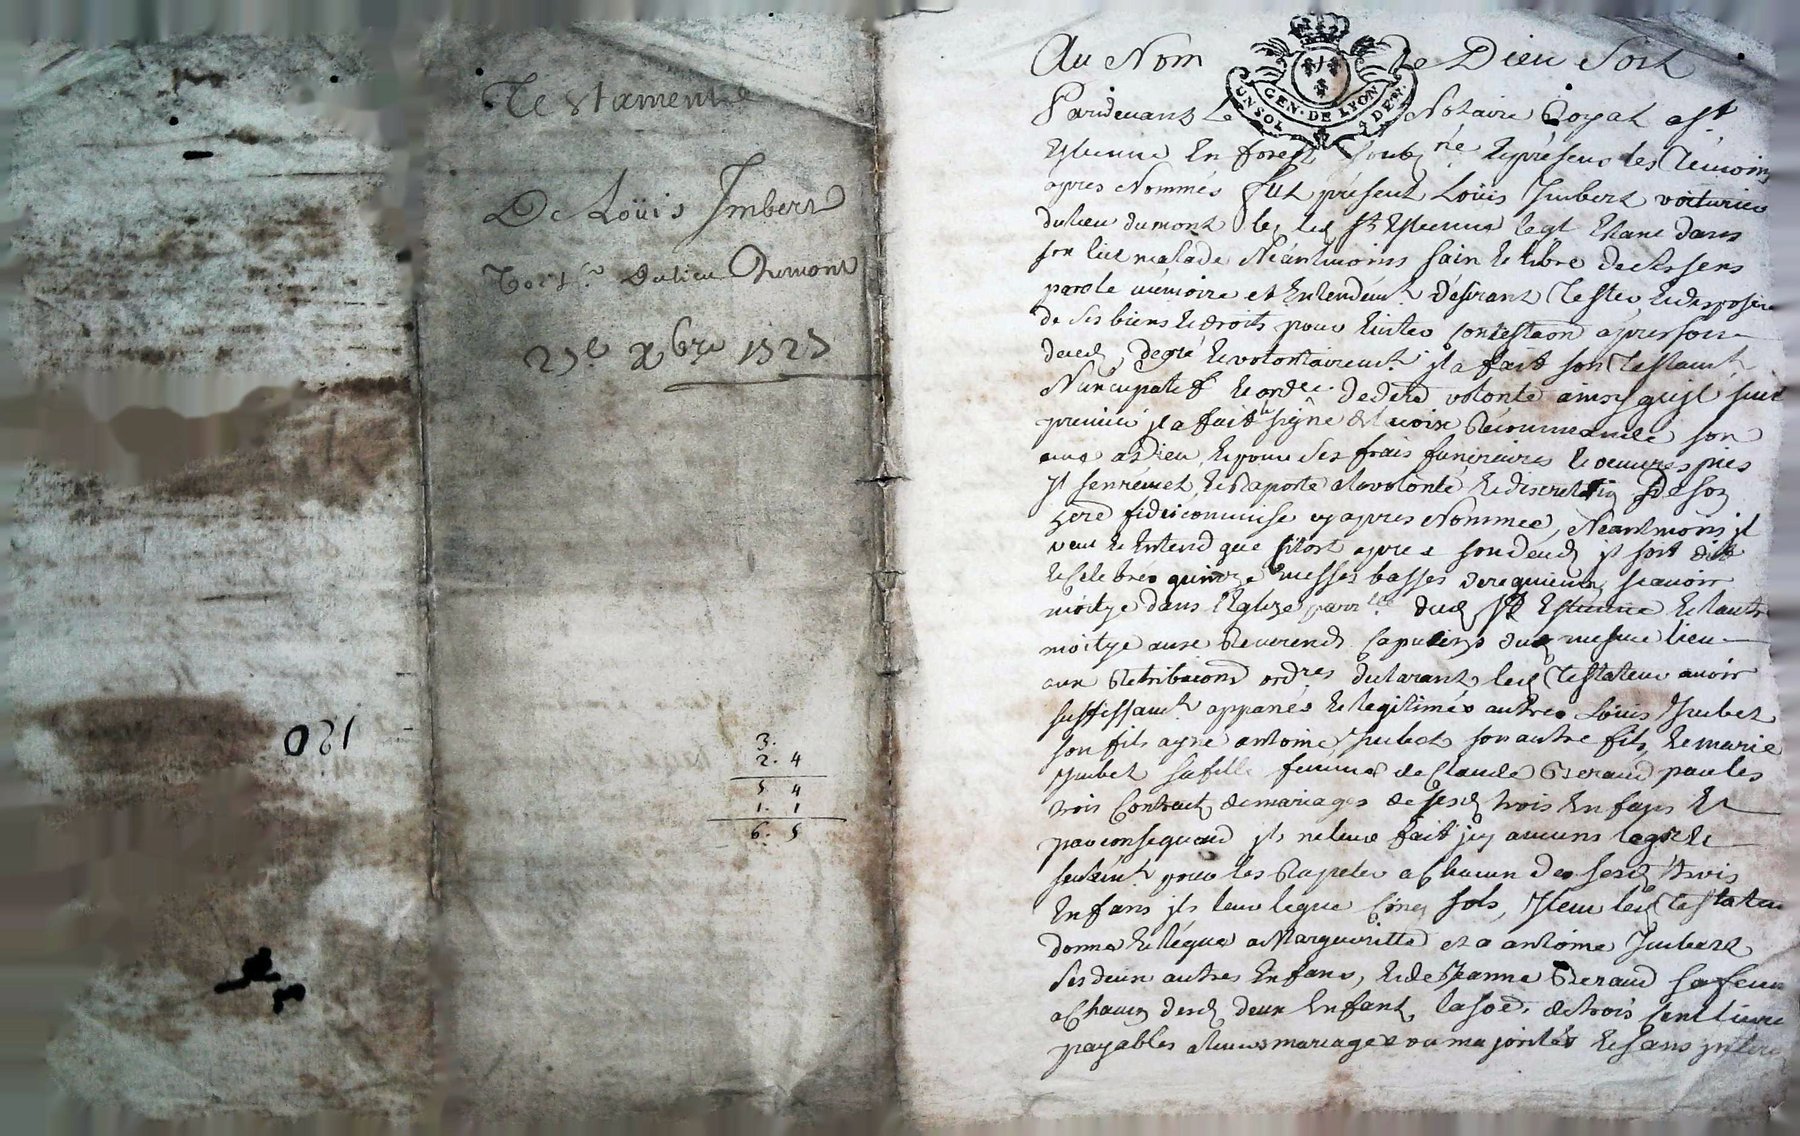 Testament
De Loüis Imbert
du lieu Dumont
25.e Xbre 1727
120
3.
2. 4
5 4
1. 1
6. 5
Au Nom de Dieu Soit
GEN. DE LYON
UN SOL
4 DEN.
Pardevant Le Notaire Royal a St
Estienne En forest soubzné Et présens les Témoins
apres Nommés fut présent Loüis Imbert voiturier
du lieu du mont lez led St Estienne leql Etant dans
son lict malade Néantmoins sain et libre de ses sens
parole mémoire et Entendemt désirant Tester et disposer
de ses biens et droits pour Eviter Contestaon apres son
deced, de gré et volontairemt il a fait son Testamt
Nuncupatif et ordre de dere volonté ainsy qu'jl suit
premier jl a fait le signe de la croix Recommandé son
ame a Dieu, et pour ses frais funeraires et oeuvres pies
jl s'en remet et Raporte a la volonté et discretion de son
here fideicommise cy apres Nommée, Néantmoins jl
veut et Entend que sitost apres son deced jl soit dit
et Celebré quinze messes basses de requiem, scavoir
moitye dans l'Eglize parrlle dud St Estienne et l'autre
moitye aux Reverends Capucins dud mesme lieu
aux Retribuions ordres declarant led Testateur avoir
suffissamt appanés et légitimés autres Loüis Imbert
son fils ayné antoine Imbert son autre fils, et marie
Imbert sa fille femme de Claude Beraud par les
trois Contracts de mariages de sesd trois Enfans et
par consequand jls ne leur fait jcy aucuns legs et
seulemt pour les Rapeler a Chacun des sesd trois
Enfans jls leur legue Cinq sols, Item led Testateur
donne et légue a Margueritte et a antoine Imbert
ses deux autres Enfans, et de Jeanne Beraud sa femme
a Chacun desd deux Enfant, la soe. de trois sent livres
payables a leurs mariages ou majorités et sans